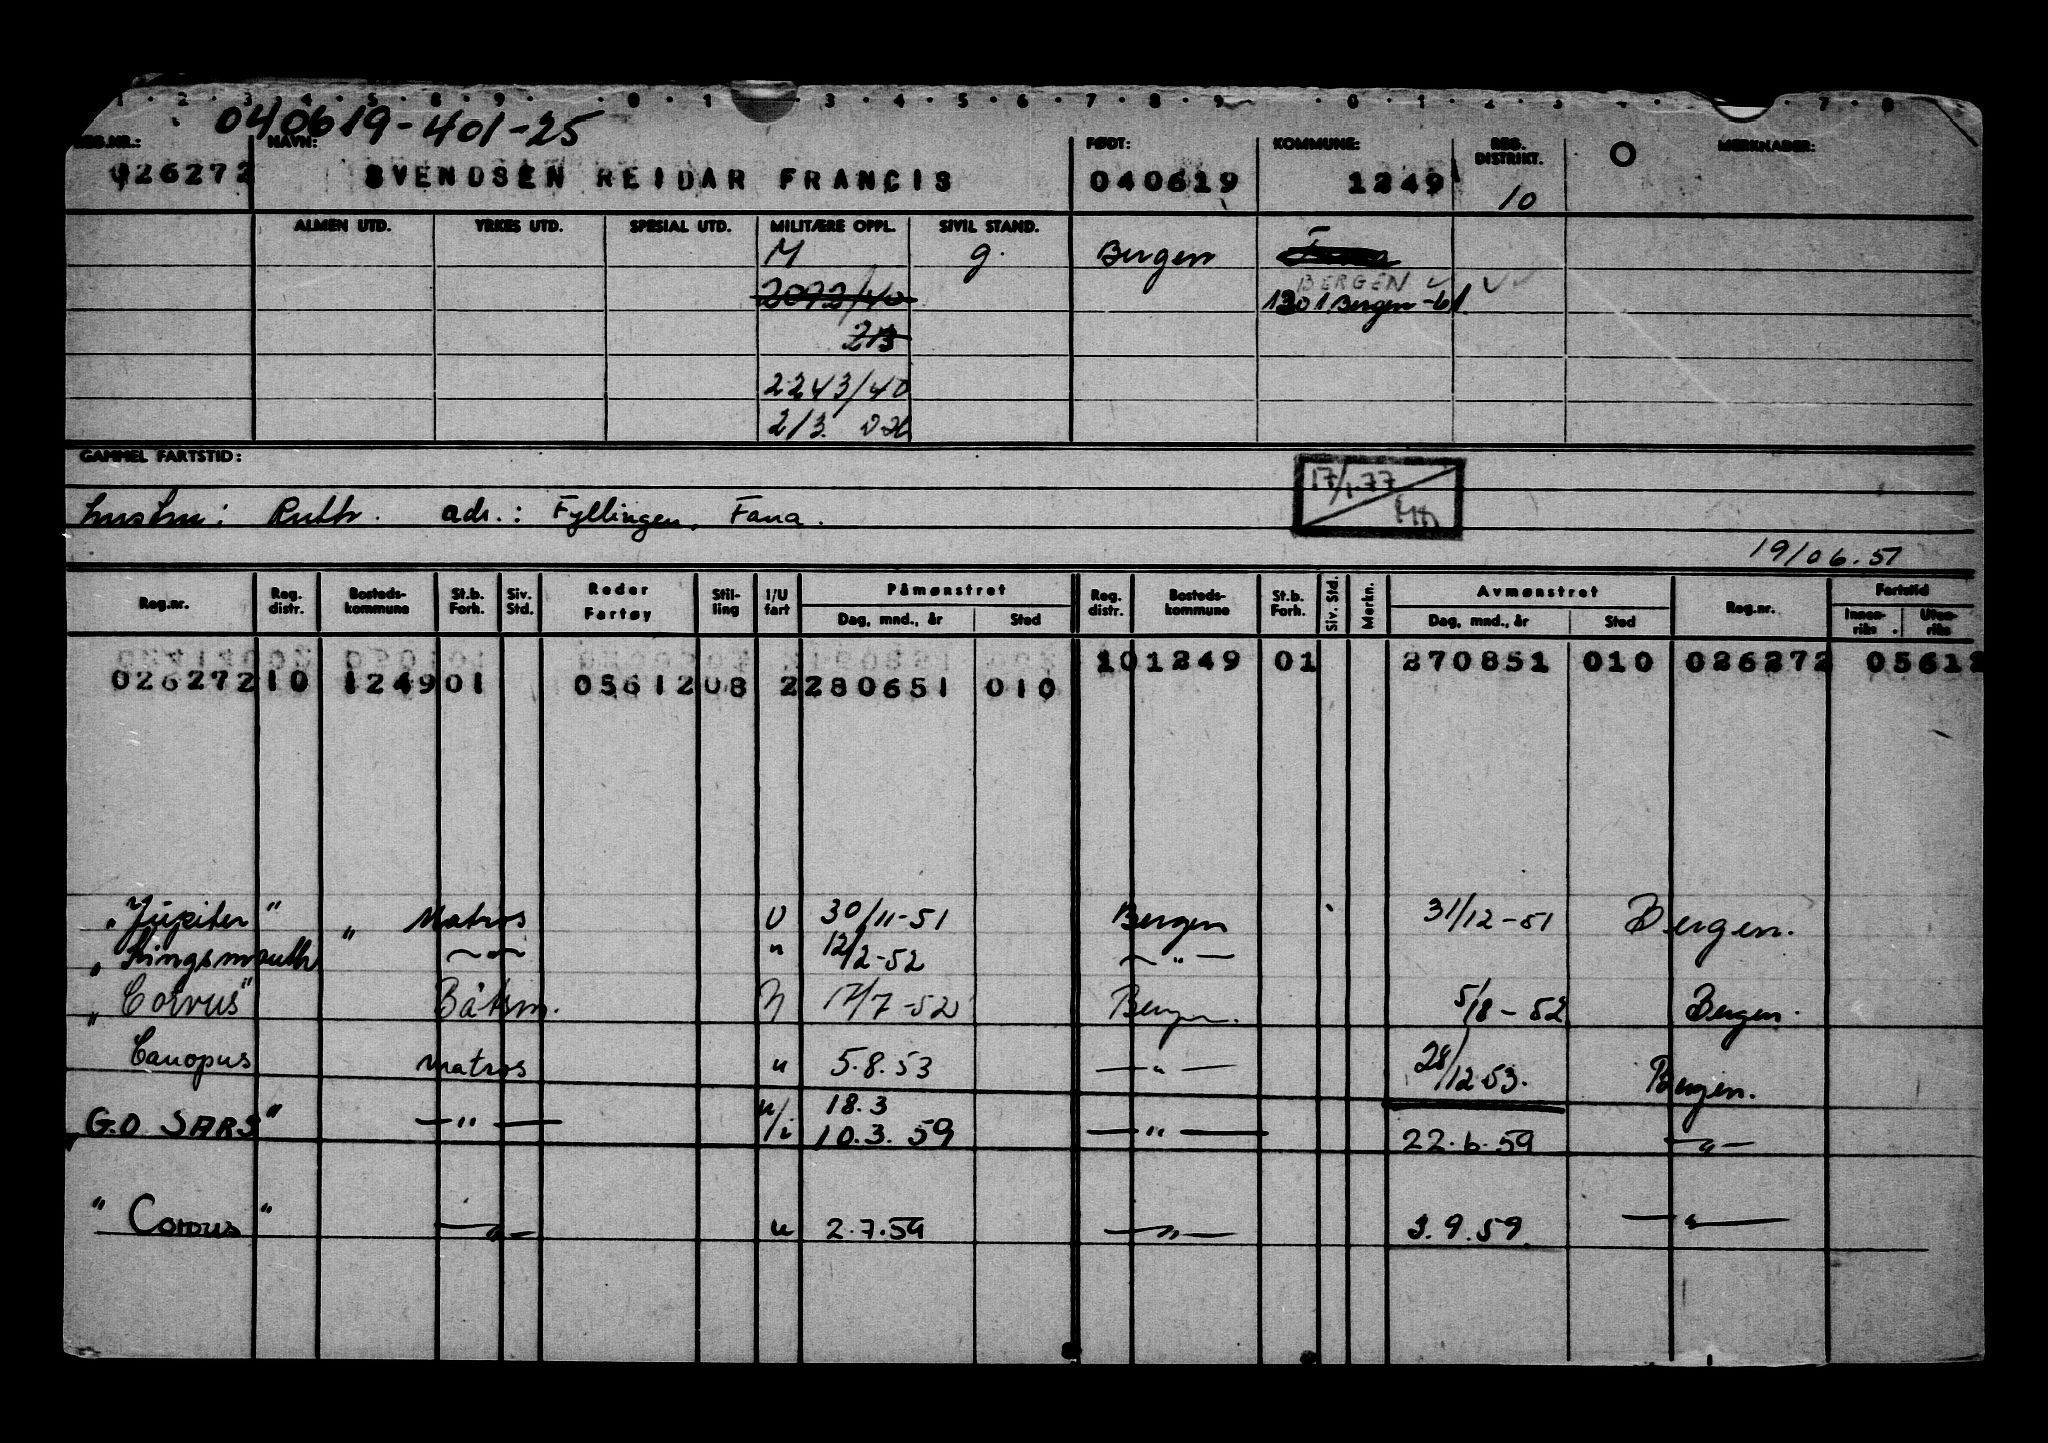 040619-401-25
REG.NR.: NAVN: FØDT: KOMMUNE: REG. DISTRIKT. MERKNADER:
026272 SVENDSEN REIDAR FRANCIS 040619 1249 10
ALMEN UTD. YRKES UTD. SPESIAL UTD. MILITÆRE OPPL. SIVIL STAND.
M g. Bergen
2092/40 BERGEN
1301 Bergen-61
213
2243/40
213
GAMMEL FARTSTID:
17/1.77
hustru: Ruth. adr.: Fyllingen, Fana.
19/06.51
Reg.nr. Reg. distr. Bosteds-kommune St.b. Forh. Siv. Std. Reder Fartøy Stil-ling I/U fart Påmønstret Dag, mnd., år Sted Reg. distr. Bosteds-kommune St.b. Forh. Siv. Std. Merkn. Avmønstret Dag, mnd., år Sted Reg.nr. Fartstid Innen-riks Uten-riks
101249 01 270851 010 026272 05612
026272 10 1249 01 05612 08 2 280651 010
"Jupiter" " Matros U 30/11-51 Bergen 31/12-51 Bergen.
"Kingsmouth —"— " 12/2-52 —"—
"Corvus" Båtsm. U 17/7-52 Bergen. 5/8-52 Bergen.
Canopus matros u 5.8.53 —"— 28/12 53. Bergen.
"G.O SARS" —"— u/i 18.3 10.3.59 —"— 22.6.59 —"—
"Corvus" —"— u 2.7.59 —"— 3.9.59. —"—